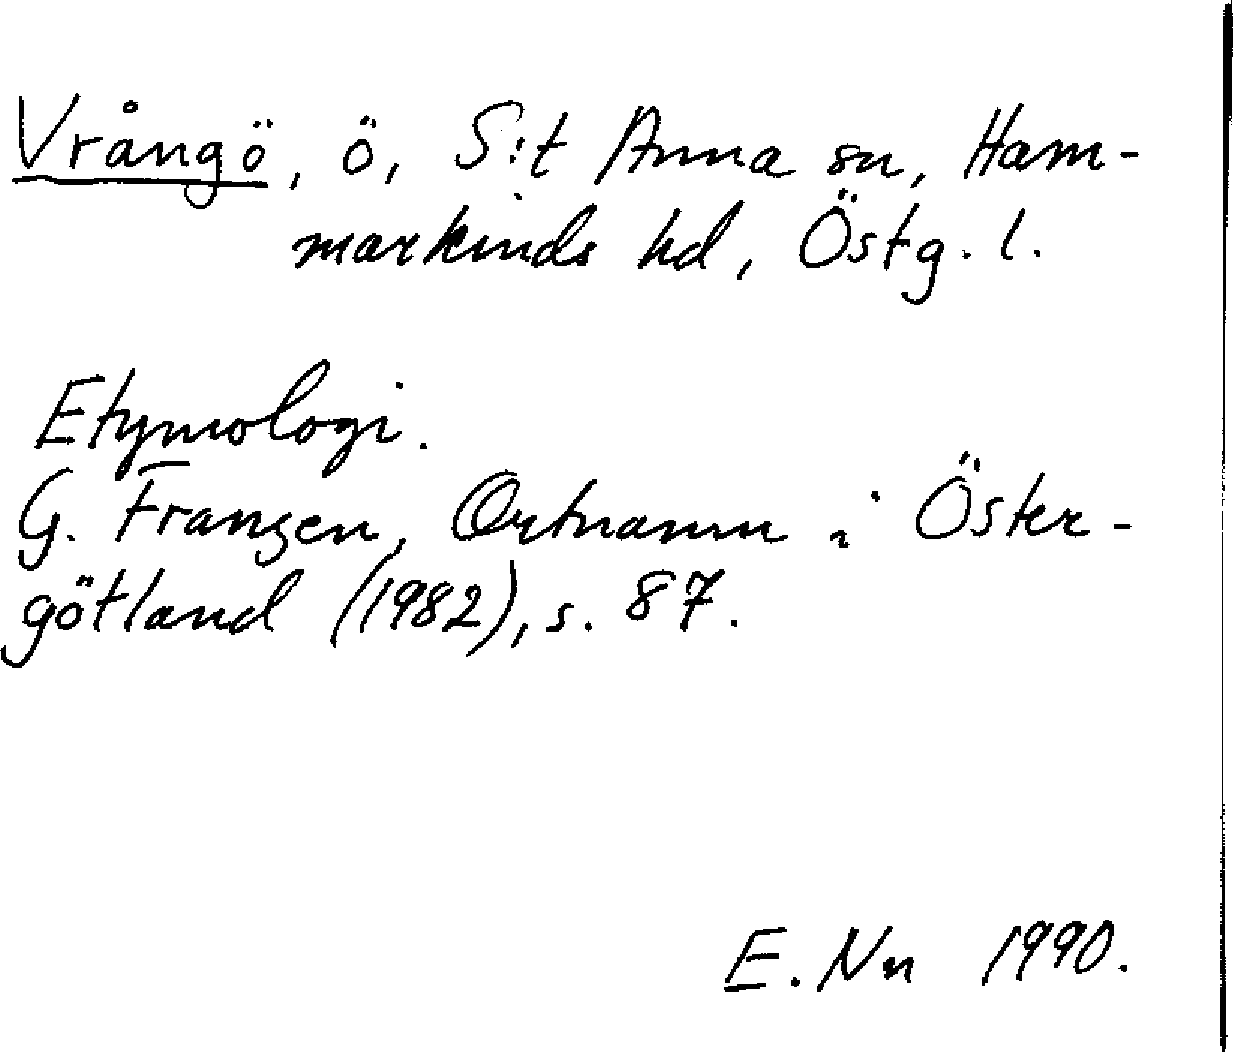 Vrångö, ö, S:t Anna sn, Ham-
markinds hd, Östg. l.
Etymologi.
G. Franzen, Ortnamn i Öster-
götland (1982), s. 87.
E. Nn 1990.